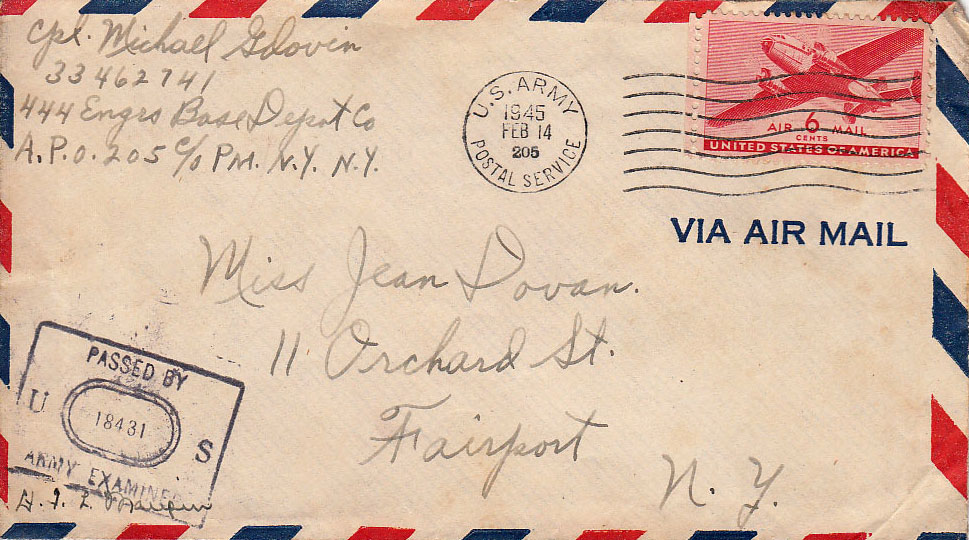 Cpl. Michael Glovin
33462741
444 Engrs Base Depot Co
A.P.O. 205 c/o P.M. N.Y. N.Y.
U.S. ARMY
1945
FEB 14
205
POSTAL SERVICE
AIR 6 MAIL
CENTS
UNITED STATES OF AMERICA
VIA AIR MAIL
Miss Jean Dovan.
11 Orchard St.
Fairport
N.Y.
PASSED BY
U 18431 S
ARMY EXAMINER